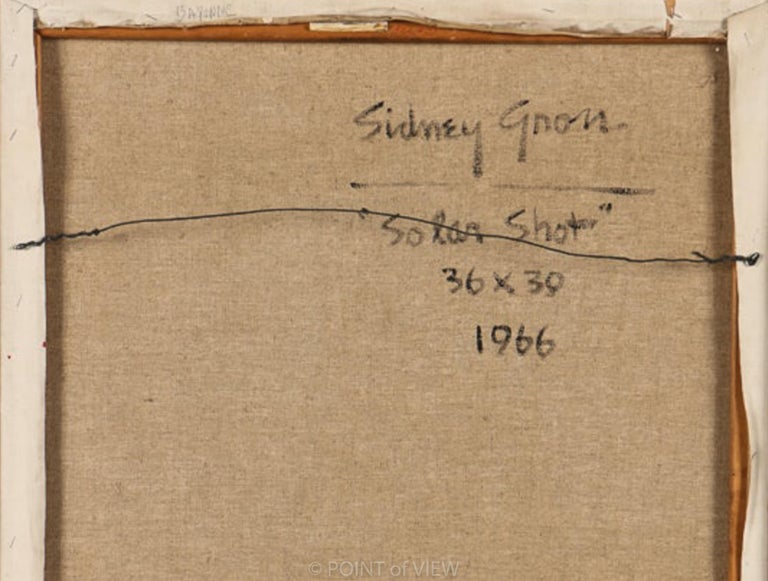 Sidney Gross.
"Solar Shot"
36 x 30
1966
© POINT of VIEW